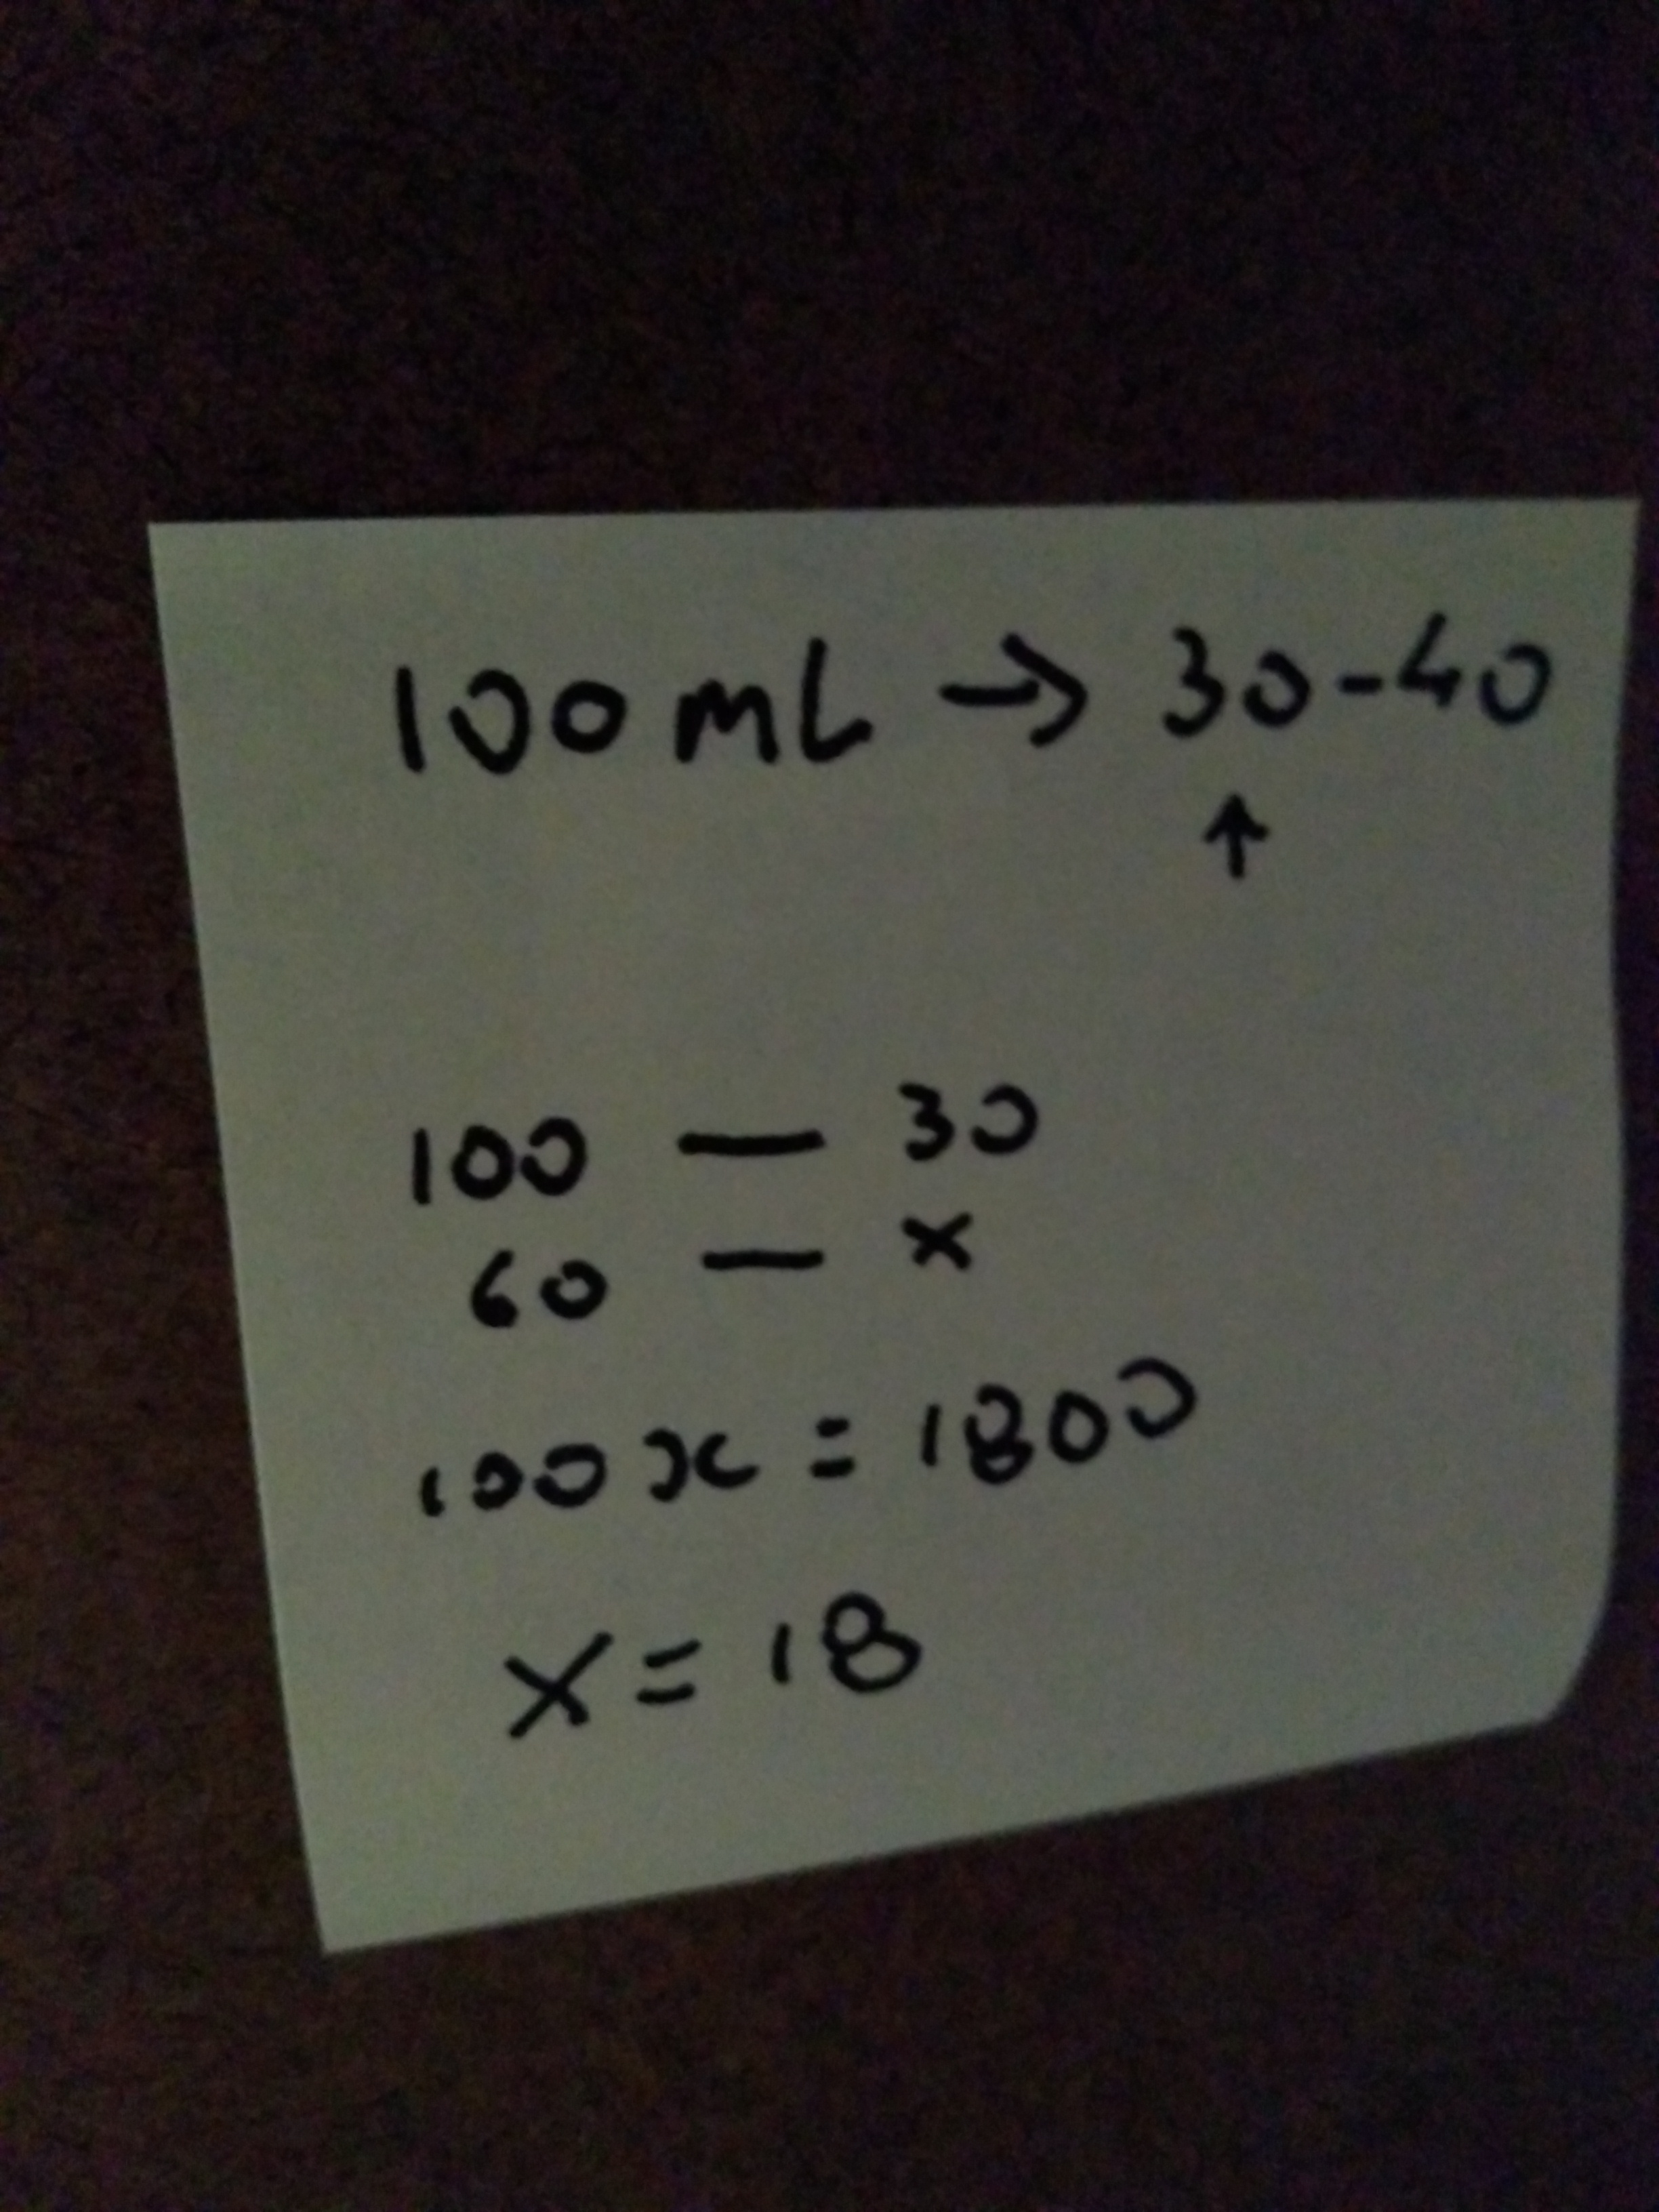 100 mL → 30-40
↑
100 — 30
60 — x
100x = 1800
x = 18